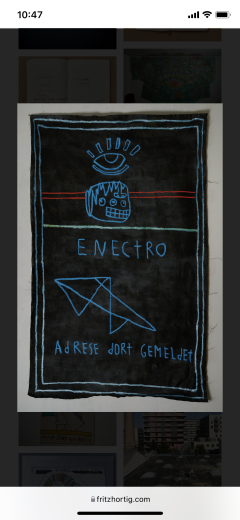 10:47
ENECTRO
AdRESE dORT GEMELdET
fritzhortig.com